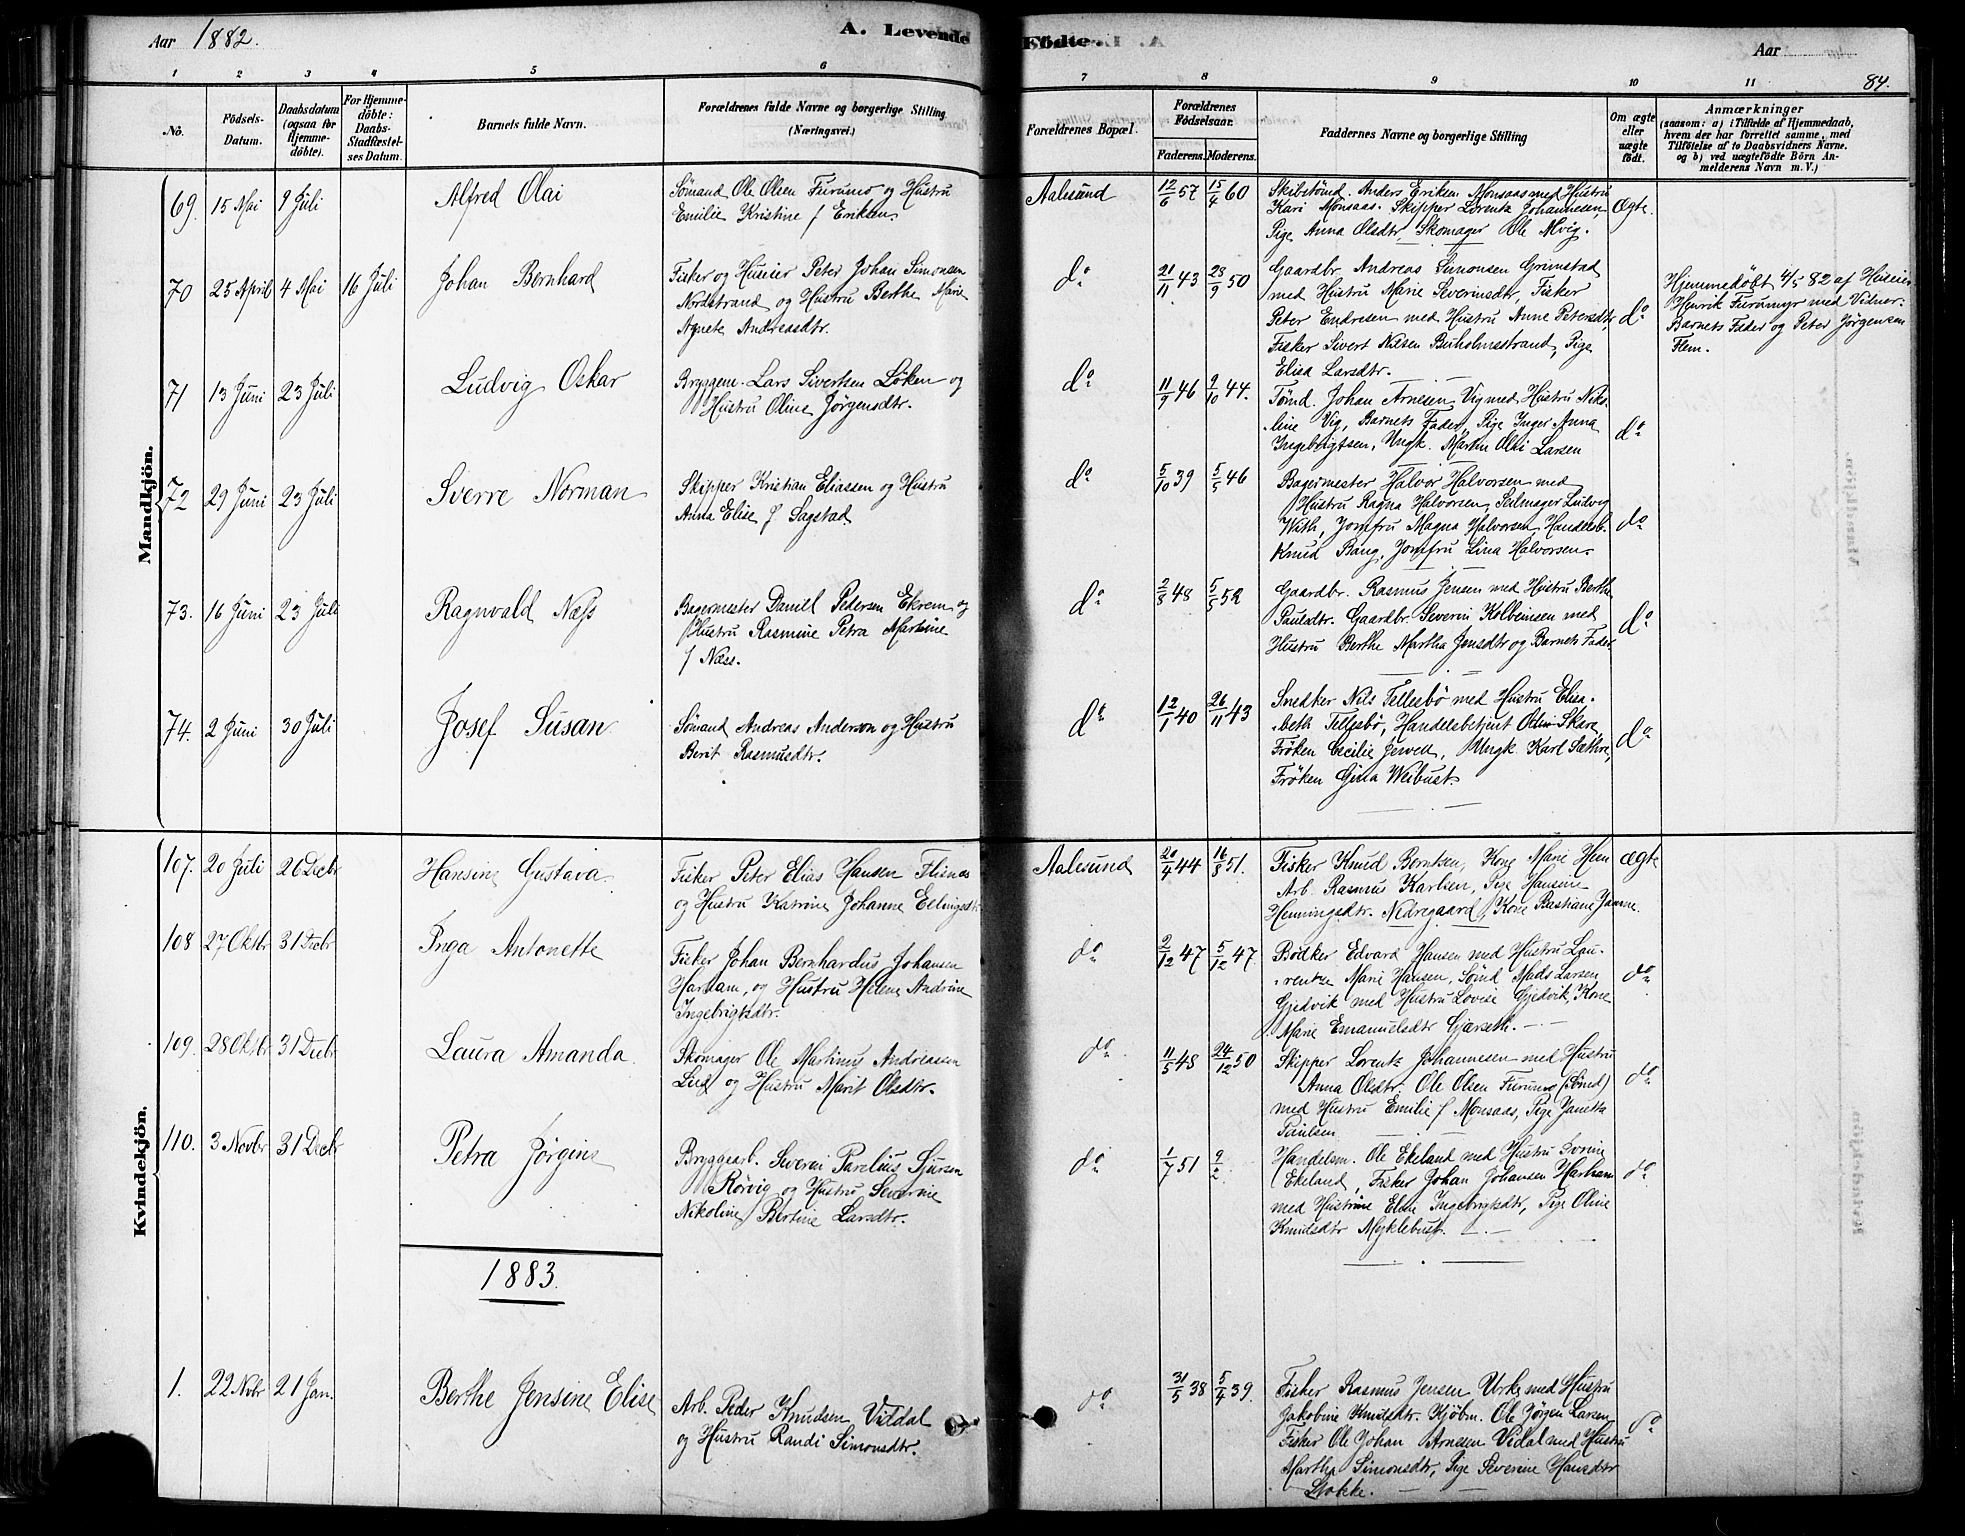 Aar 1882.
A. Levende Födte.
Aar
84.
1 2 3 4 5 6 7 8 9 10 11
No.
Födsels-Datum.
Daabsdatum (ogsaa for Hjemme-döbte).
For Hjemme-döbte: Daabs-Stadfæstel-ses Datum.
Barnets fulde Navn.
Forældrenes fulde Navne og borgerlige Stilling
(Næringsvei.)
Forældrenes Bopæl.
Forældrenes Födselsaar.
Faderens. Moderens.
Faddernes Navne og borgerlige Stilling
Om ægte eller uægte födt.
Anmærkninger
(saasom: a) i Tilfælde af Hjemmedaab,
hvem der har forrettet samme, med
Tilföielse af to Daabsvidners Navne.
og b) ved uægtefödte Börn An-
melderens Navn m. V.)
Mandkjön.
69. 15 Mai 9 Juli
Alfred Olai
Sömand Ole Olsen Furmo og Hustru
Emilie Kristine f Eriksen.
Aalesund
12/6 57 15/4 60
Skibstömd. Anders Eriksen Monsaas med Hustru
Kari Monsaas. Skipper Lorentz Johannesen
Pige Anna Olsdtr, Skomager Ole Alvig.
Ægte.
70 25 April 4 Mai 16 Juli
Johan Bernhard
Fisker og Huseier Peter Johan Simonsen
Nordstrand og Hustru Berthe Marie
Agnete Andreasdtr.
do
21/11 43 28/9 50
Gaardbr. Andreas Simonsen Grimstad
med Hustru Marie Severinsdtr, Fisker
Peter Endresen med Hustru Anne Petersdtr,
Fisker Sivert Nilsen Buholmstrand, Pige
Elisa Larsdtr.
do
Hjemmedöbt 4/5 82 af Huseier
Henrik Furumyr med Vidner:
Barnets Fader og Peter Jörgensen
Flem.
71 13 Juni 23 Juli
Ludvig Oskar
Bryggem. Lars Sivertsen Löken og
Hustru Oline Jörgensdtr.
do
11/9 46 9/10 44.
Tönd. Johan Arnesen Vig med Hustru Niko-
line Vig, Barnets Fader, Pige Inger Anna
Ingebrigtsen, Ungk. Martin Olai Larsen
do
72 29 Juni 23 Juli
Sverre Norman
Skipper Kristian Eliassen og Hustru
Anna Elise f Sagstad
do
5/10 39 5/5 46
Bagermester Halvor Halvorsen med
Hustru Ragna Halvorsen, Seilmager Ludvig
With, Jomfru Magna Halvorsen, Handelsb.
Knud Bang, Jomfru Lina Halvorsen.
do
73. 16 Juni 23 Juli
Ragnvald Næss
Bagermester Daniel Pedersen Ekrem og
Hustru Rasmine Petra Martine
f Næss.
do
2/8 48 5/5 52
Gaardbr. Rasmus Jensen med Hustru Berthe
Paulsdtr. Gaardbr. Severin Kolbeinsen med
Hustru Berthe Martha Jensdtr og Barnets Fader
do
74. 2 Juni 30 Juli
Josef Susan
Sömand Andreas Anderson og Hustru
Berit Rasmusdtr.
do
12/1 40 26/11 43
Snedker Nils Tellesbö med Hustru Elisa-
beth Tellesbö, Handelsbetjent Odin Skare,
Fröken Cecilie Jervell, Ungk. Karl Sæthre,
Fröken Gina Weibust.
do
Kvindekjön.
107. 20 Juli 26 Decbr
Hansine Gustava.
Fisker Peter Elias Hansen Flienæs
og Hustru Katrine Johanne Ellingsdtr
Aalesund
20/4 44 16/8 51.
Fisker Knud Berntsen, Kone Marie Hem
Arb. Rasmus Karlsen, Pige Hansine
Henningsdtr. Nedregaard, Kone Bastiane Janne.
ægte
108 27 Oktbr 31 Decbr
Inga Antonette
Fisker Johan Bernhardus Johansen
Harham, og Hustru Helene Andrine
Ingebrigtsdtr.
do
2/12 47 5/12 47
Bödker Edvard Hansen med Hustru Lau-
rentze Marie Hansen, Sömd Mads Larsen
Gjedvik med Hustru Lovise Gjedvik, Kone
Marie Emanuelsdtr Gjærseth.
do
109. 28 Oktbr 31 Decbr
Laura Amanda.
Skomager Ole Martinus Andreassen
Lied og Hustru Marit Olsdtr.
do
11/5 48 24/12 50
Skipper Lorentz Johannesen med Hustru
Anna Olsdtr. Ole Olsen Furumo (Sömd)
med Hustru Emilie f Monsaas, Pige Janetta
Paulsen
do
110. 3 Novbr 31 Decbr
Petra Jørgine
Bryggearb. Severin Parelius Sjursen
Rörvig og Hustru Severine
Nikoline Bertine Larsdtr.
do
1/7 51 9/2.
Handelsm. Ole Ekeland med Hustru Ivrine
Ekeland, Fisker Johan Johansen Harham
med Hustrue Eline Ingebrigtsdtr, Pige Oline
Knudsdtr Myklebust.
do
1883.
1. 22 Novbr 21 Jan.
Berthe Jensine Elise
Arb. Peder Knudsen Viddal
og Hustru Randi Simonsdtr.
do
31/5 38 5/4 39.
Fisker Rasmus Jensen Urke med Hustru
Jakobine Knudsdtr. Kjöbm. Ole Jörgen Larsen
Fisker Ole Johan Arnesen Vidal med Hustru
Martha Simonsdtr, Pige Severine Hansdtr
Stokke.
do